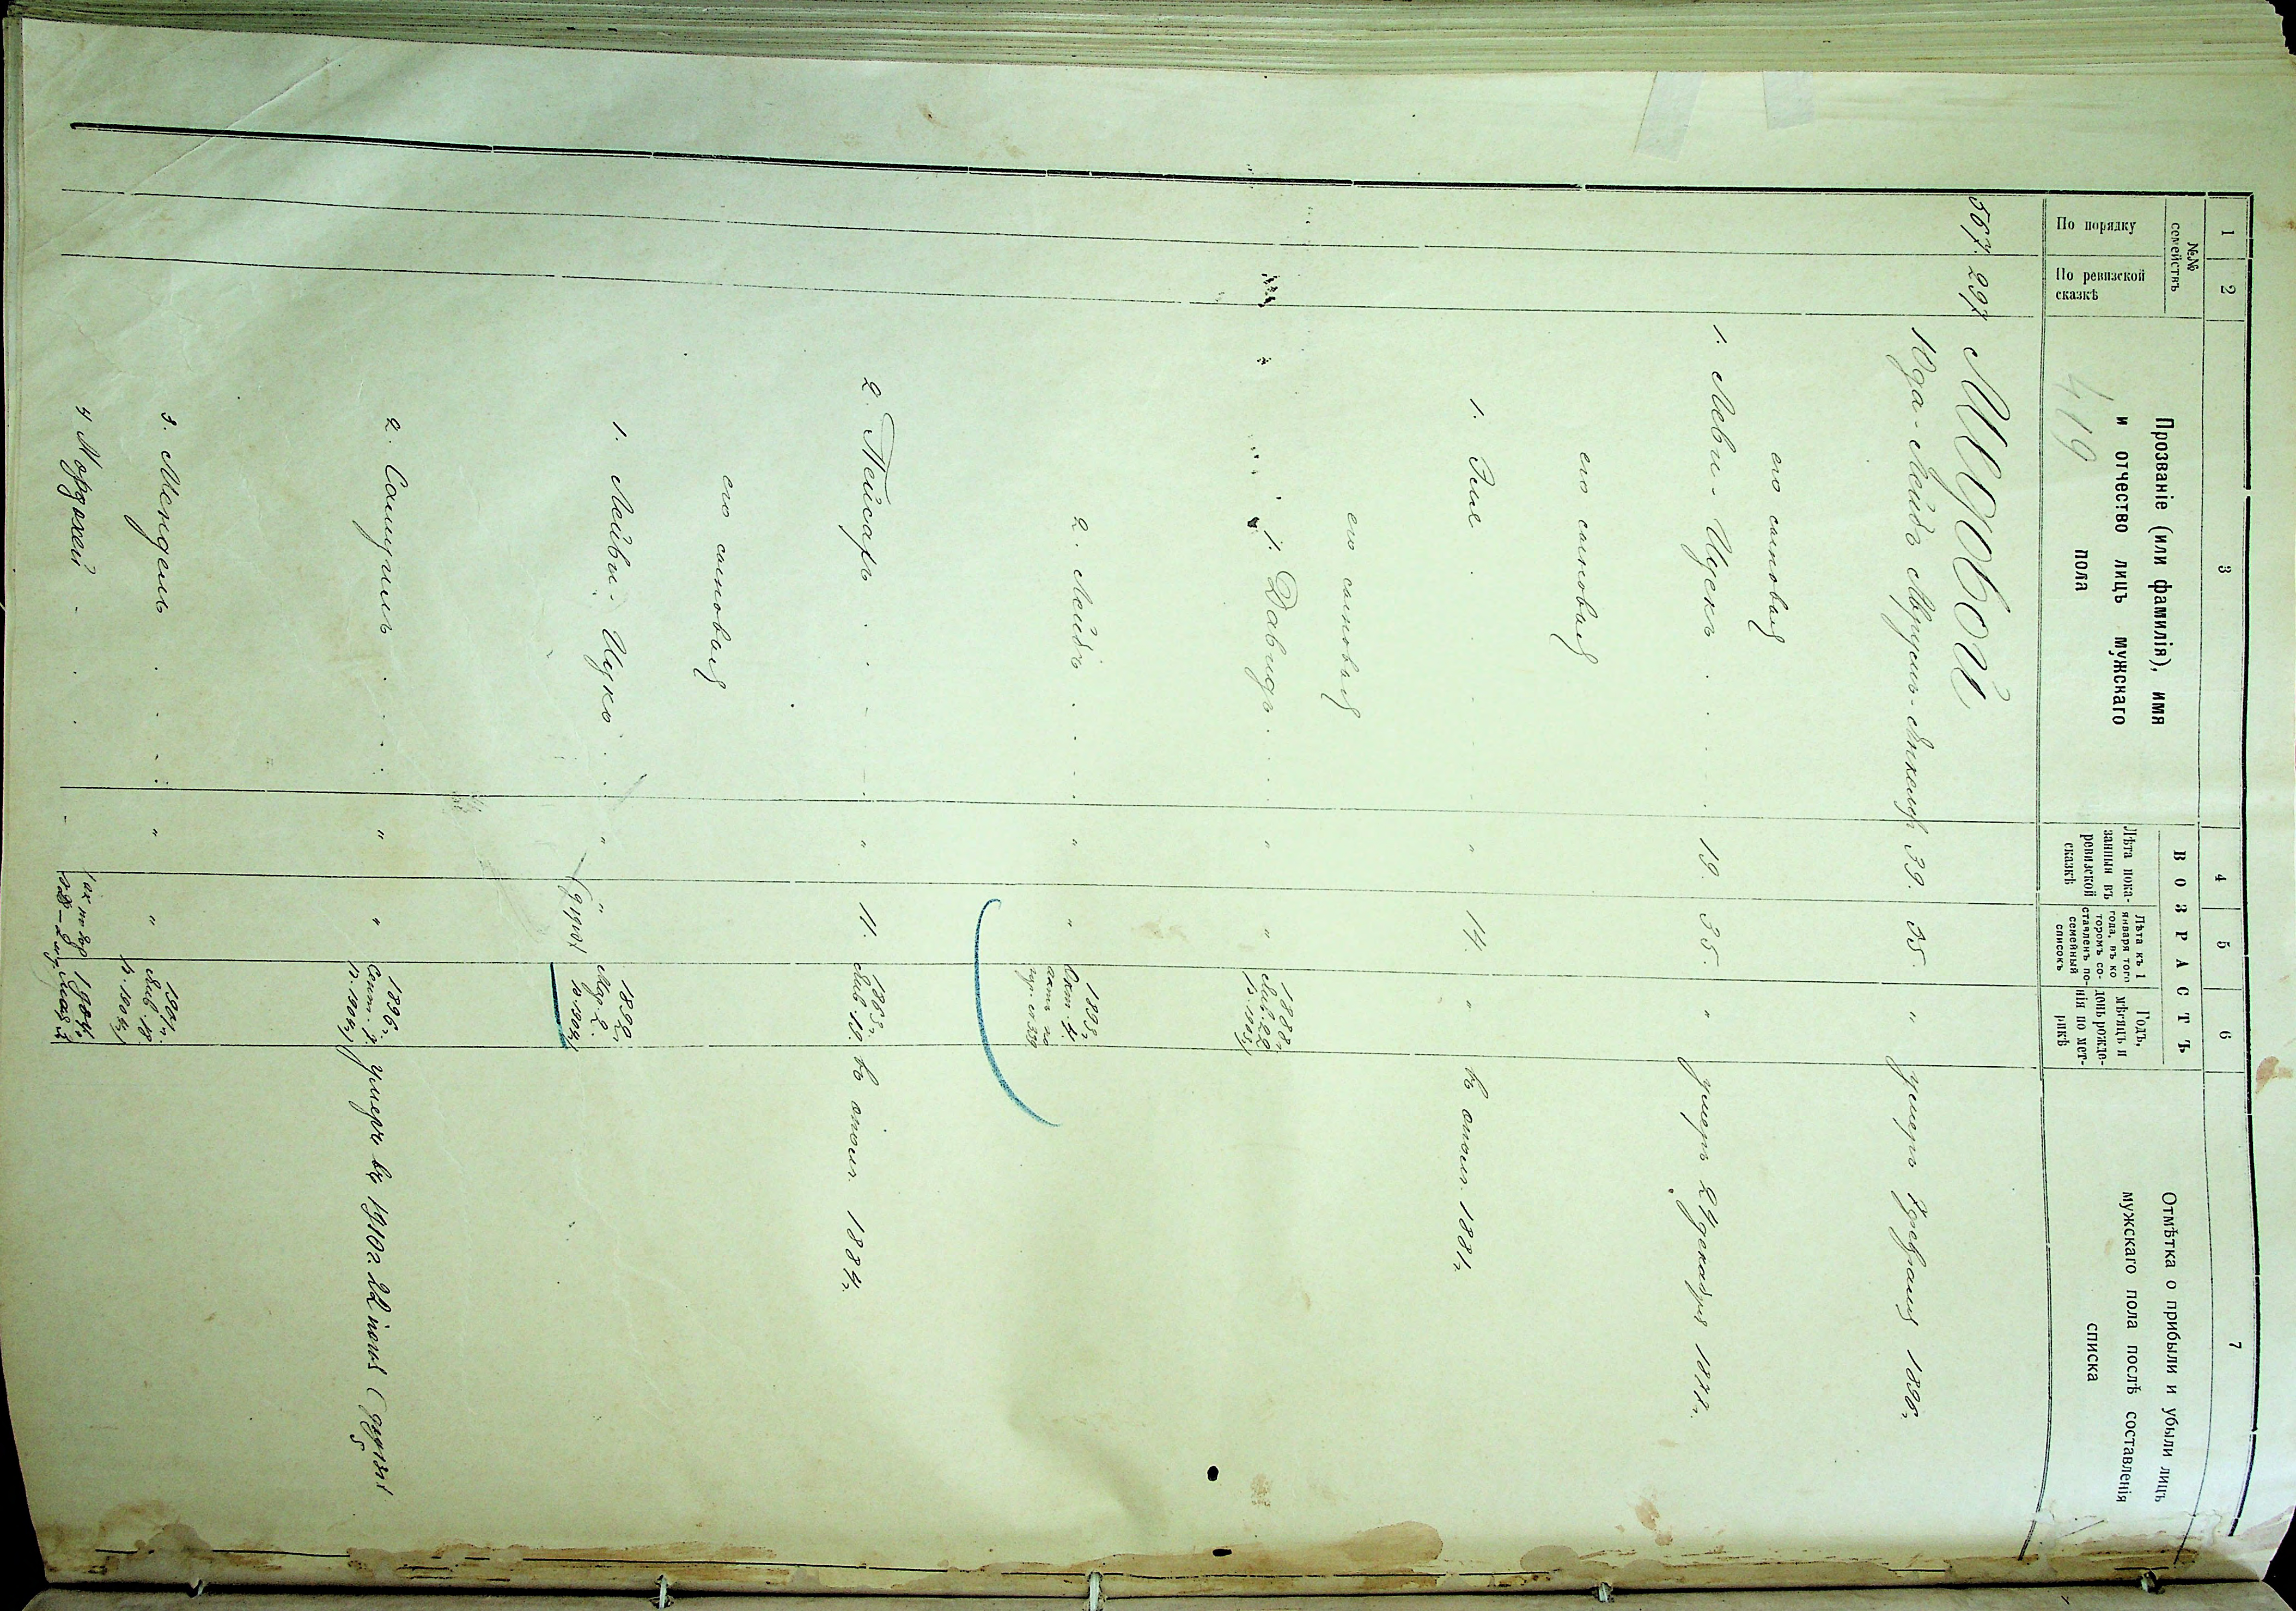 1 2 3 4 5 6 7
№№ семействъ
По порядку
По ревизской сказкѣ
Прозваніе (или фамилія), имя
и отчество лицъ мужскаго
пола
419
ВОЗРАСТЪ
Лѣта пока-
занныя въ
ревизской
сказкѣ
Лѣта къ 1
января того
года, въ ко-
торомъ со-
ставленъ по-
семейный
списокъ
Годъ,
мѣсяцъ и
день рожде-
нія по мет-
рикѣ
Отмѣтка о прибыли и убыли лицъ
мужскаго пола послѣ составленія
списка
567. 297 Мидовой
Юда-Лейбъ 39. 55. " умеръ 7 февраля 1896г.
его сыновья
1. Леви-Ицекъ . . . 19. 35. " умеръ 24 декабря 1877г.
его сыновья
1. Элие . . . " 14. " въ ополч. 1881г.
его сыновья
1. Давидъ . . . " " 1888г.
Янв. 22
2. Лейбъ . . . " " 1893г.
Окт. 4.
2. Пейсахъ . . . " 11. 1863г.
Янв. 19. въ ополч. 1884г.
его сыновья
1. Лейви-Ицко . . " " 1892г.
Мар. 2.
2. Самуилъ . . . " " 1896г.
Сент. 7. умеръ въ 1910г. 22 іюня
3. Мендель . . . " " 1901г.
Янв. 18
4 Мордохей - . . - 1904г.